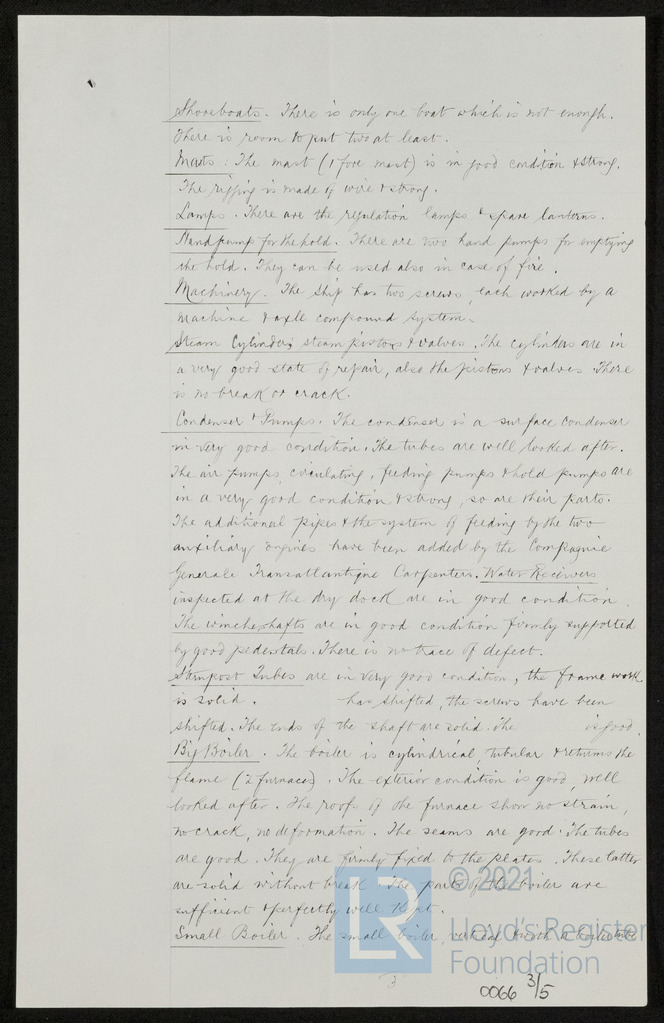 Shoreboats. There is only one boat which is not enough.
There is room to put two at least.
Masts: The mast (1 fore mast) is in good condition & strong.
The rigging is made of wire & strong.
Lamps. There are the regulation lamps & spare lanterns.
Hand pump for the hold. There are two hand pumps for emptying
the hold. They can be used also in case of fire.
Machinery. The ship has two screws, each worked by a
machine & axle compound system.
Steam Cylinders steam pistons & valves. The cylinders are in
a very good state of repair, also the pistons & valves. There
is no break or crack.
Condenser & Pumps. The condenser is a surface condenser
in very good condition. The tubes are well looked after.
The air pumps, circulating, feeding pumps & hold pumps are
in a very good condition & strong, so are their parts.
The additional pipes & the system of feeding by the two
auxiliary engines have been added by the Compagnie
Generale Transatlantique Carpenters. Water Receivers
inspected at the dry dock are in good condition.
The winchshafts are in good condition firmly supported
by good pedestals. There is no trace of defect.
Sternpost Tubes are in very good condition, the frame work
is solid. has shifted, the screws have been
shifted. The ends of the shaft are solid. The is good.
Big Boiler. The boiler is cylindrical, tubular & returns the
flame (2 furnaces). The exterior condition is good, well
looked after. The roofs of the furnace show no strain,
no crack, no deformation. The seams are good. The tubes
are good. They are firmly fixed to the plates. These latter
are solid without break. The parts of the boiler are
sufficient & perfectly well kept.
Small Boiler. The small boiler, vertical & with a
3
0066 3/5
© 2021
LR
Lloyd's Register
Foundation